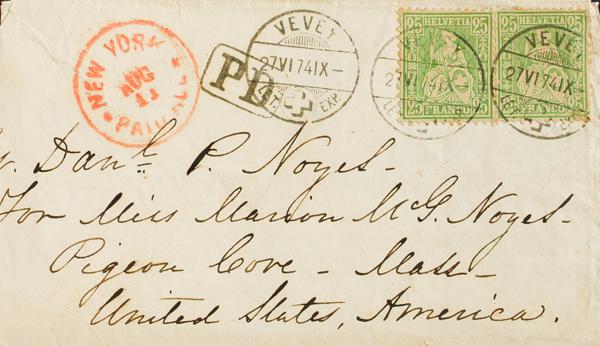 NEW YORK
AUG
PAID ALL
PD
VEVEY
27 VI 74 IX –
EXP.
25 HELVETIA 25
25 FRANCO 25
VEVEY
27 VI 74 IX –
25 HELVETIA 25
Danl. P. Noyes –
For Miss Marion McG. Noyes –
Pigeon Cove – Mass –
United States, America.